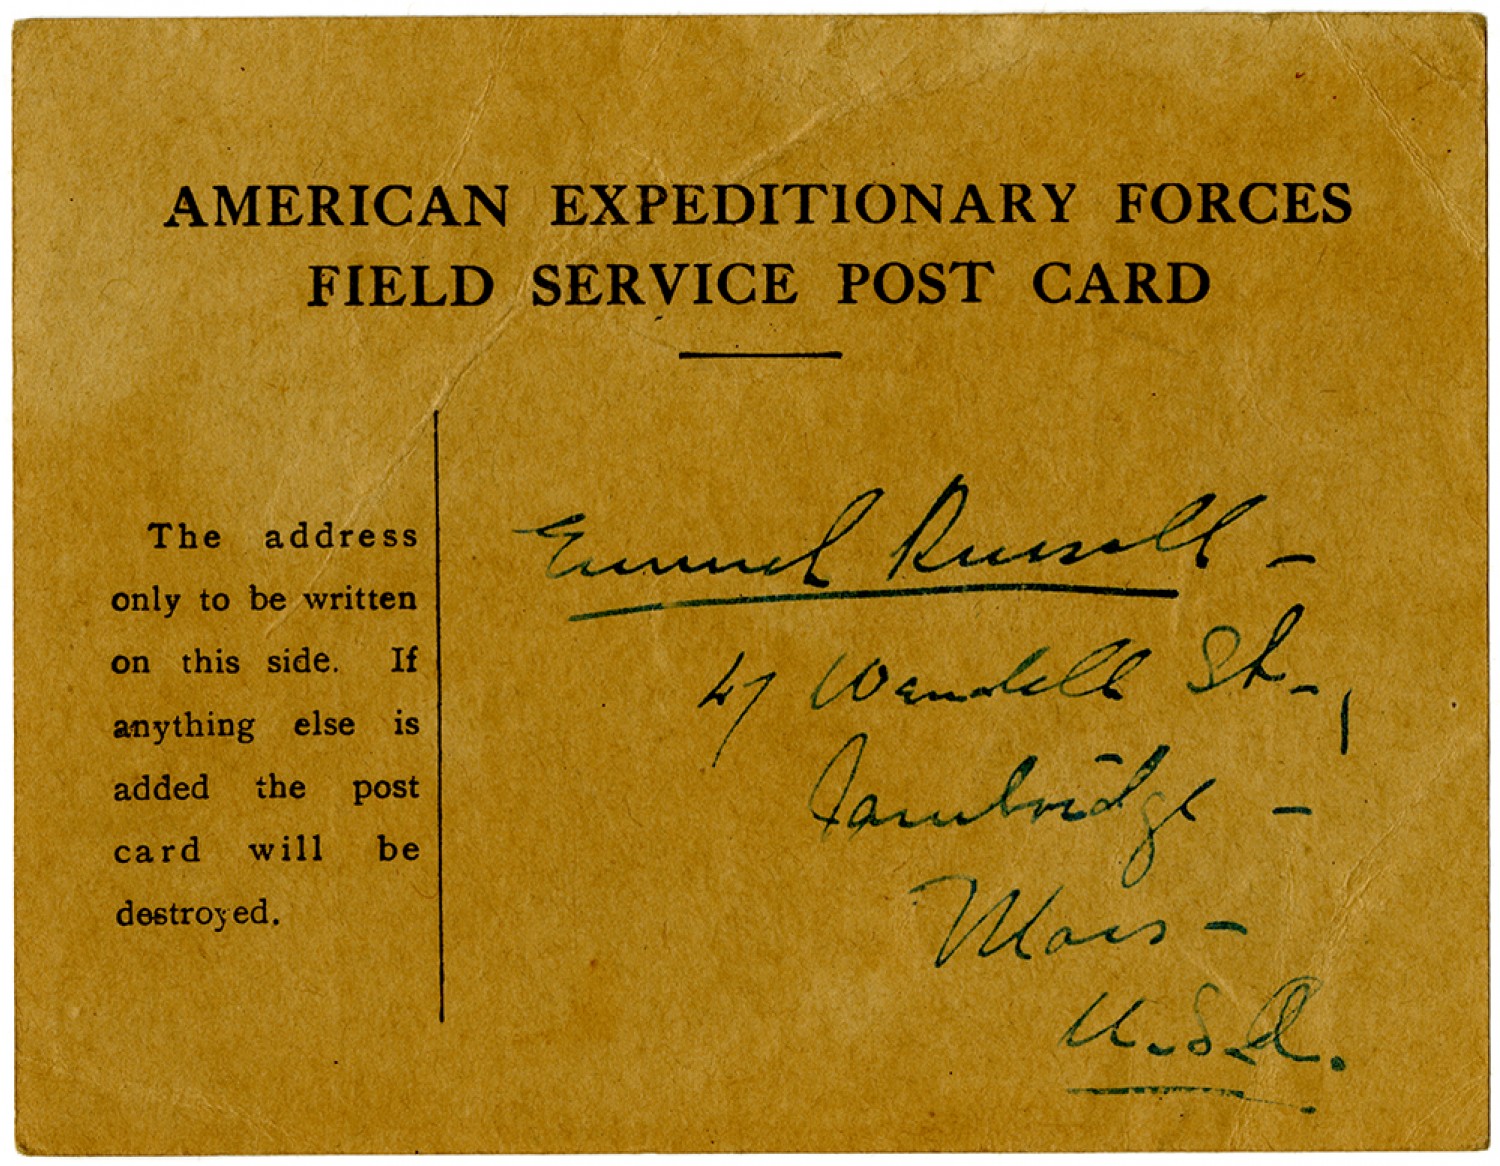 AMERICAN EXPEDITIONARY FORCES
FIELD SERVICE POST CARD
The address
only to be written
on this side. If
anything else is
added the post
card will be
destroyed.
Russell -
47 Wendell St.,
Cambridge -
Mass -
U.S.A.